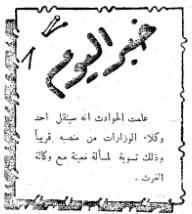 خبر اليوم
علمت الحوادث انه سينقل احد
وكلاء الوزارات من منصبه قريباً
وذلك تسوية لمسألة معينة مع وكالة
الغوث .